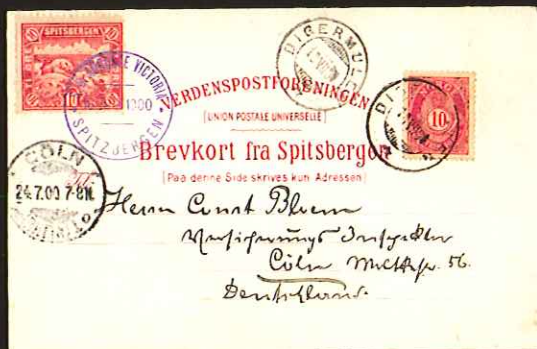 SPITSBERGEN
10
VICTORIA
1900
SPITZBERGEN
DIGERMUL
10
VERDENSPOSTFORENINGEN
(UNION POSTALE UNIVERSELLE)
Brevkort fra Spitsbergen
(Paa denne Side skrives kun Adressen)
CÖLN
24.7.00 7-8N.
Herrn Ernst Bloem
Versicherungs Inspektor
Cöln Moltkestr. 56.
Deutschland.